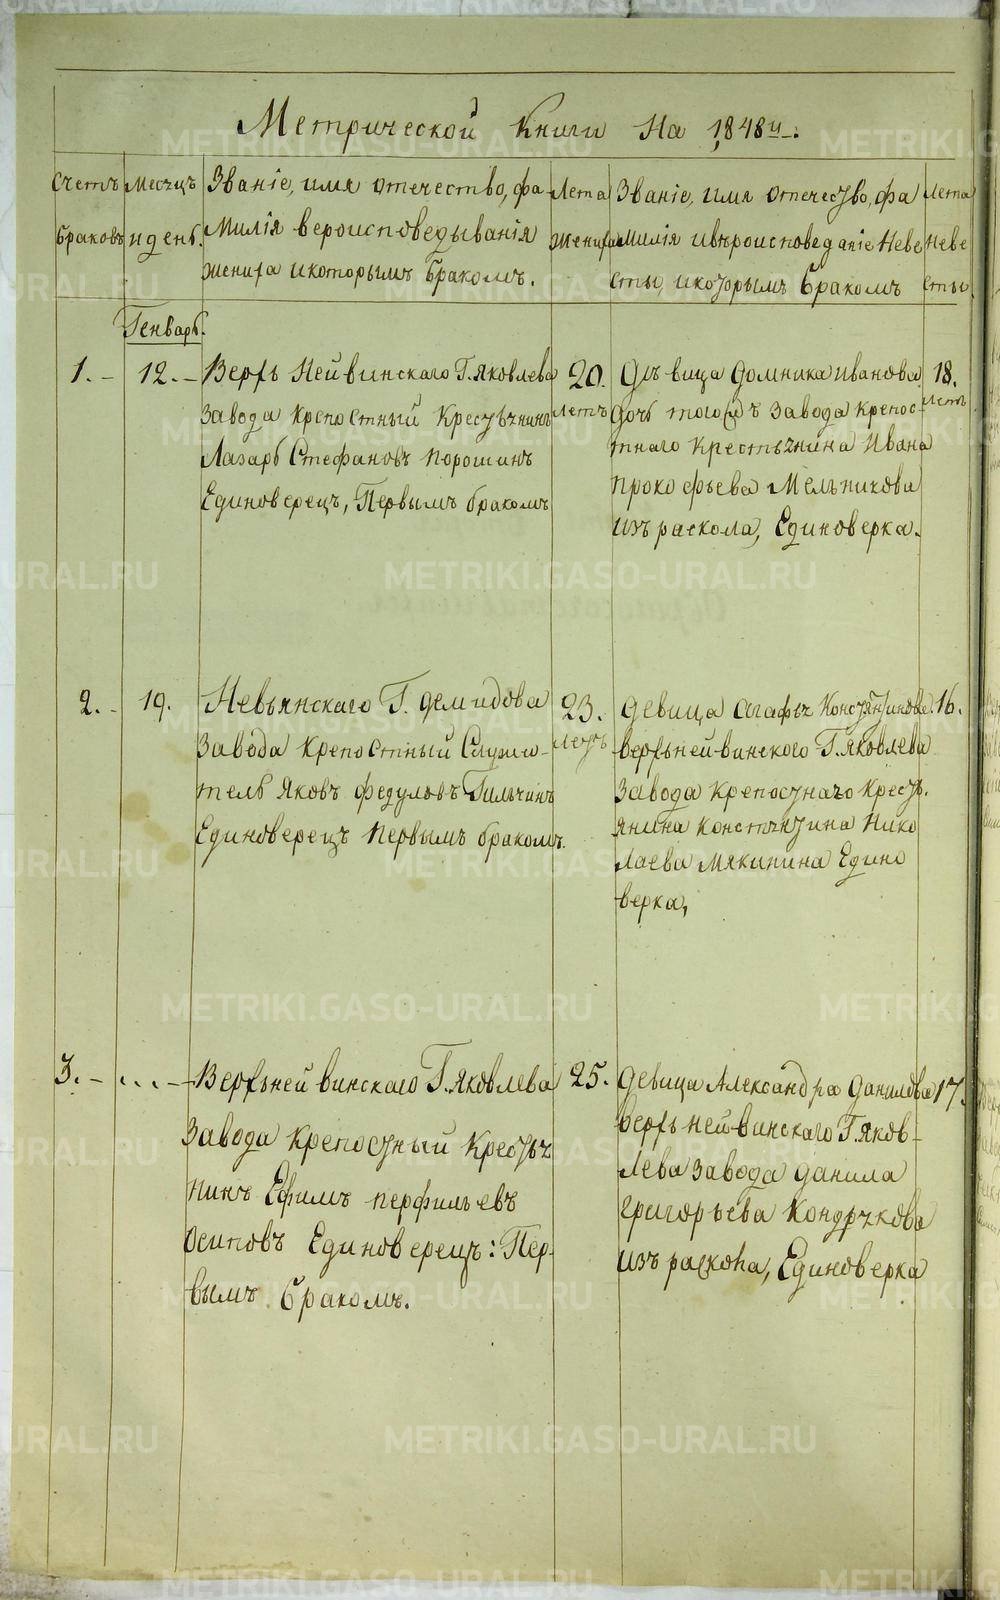 Метрической Книги На 1848й.
Счетъ браковъ
Месяцъ и день.
Званіе, имя отечество, фа
милія вероисповедыванія
жениха и которымъ бракомъ.
Лета
жениха
Званіе, имя отечество, фа
милія ивѣроисповеданіе неве
сты, и которымъ бракомъ
Лета
неве
сты
Генварь.
1. –
12. –
Верхъ Нейвинскаго Г. Яковлева
завода крепостный крестьянинъ
Лазарь Стефановъ Порошинъ
Единоверецъ, Первымъ бракомъ
20.
летъ
Дѣвица Домника Иванова
дочь тогожъ завода крепос–
тнаго крестьянина Ивана
Прокофьева Мельникова
изъ раскола, Единоверка.
18.
летъ
2. –
19.
Невьянскаго Г. Демидова
завода крепостный служи–
тель Яковъ Федуловъ Гильчинъ
Единоверецъ первымъ бракомъ.
23.
летъ
девица Агафья Константинова
верхънейвинского Г. Яковлева
завода крепостнаго кресть.
янина Константина Нико
лаева Мякинина Едино
верка,
16.
3. –
... –
Верхънейвинскаго Г. Яковлева
завода крепостный крестья
нинъ Ефимъ перфильевъ
Осиповъ Единоверецъ: Пер–
вымъ бракомъ.
25.
девица Александра Данилова
верхънейвинскаго Г. Яков–
лева завода Данила
григорьева Кондрякова
изъ раскола, Единоверка
17.
METRIKI.GASO-URAL.RU